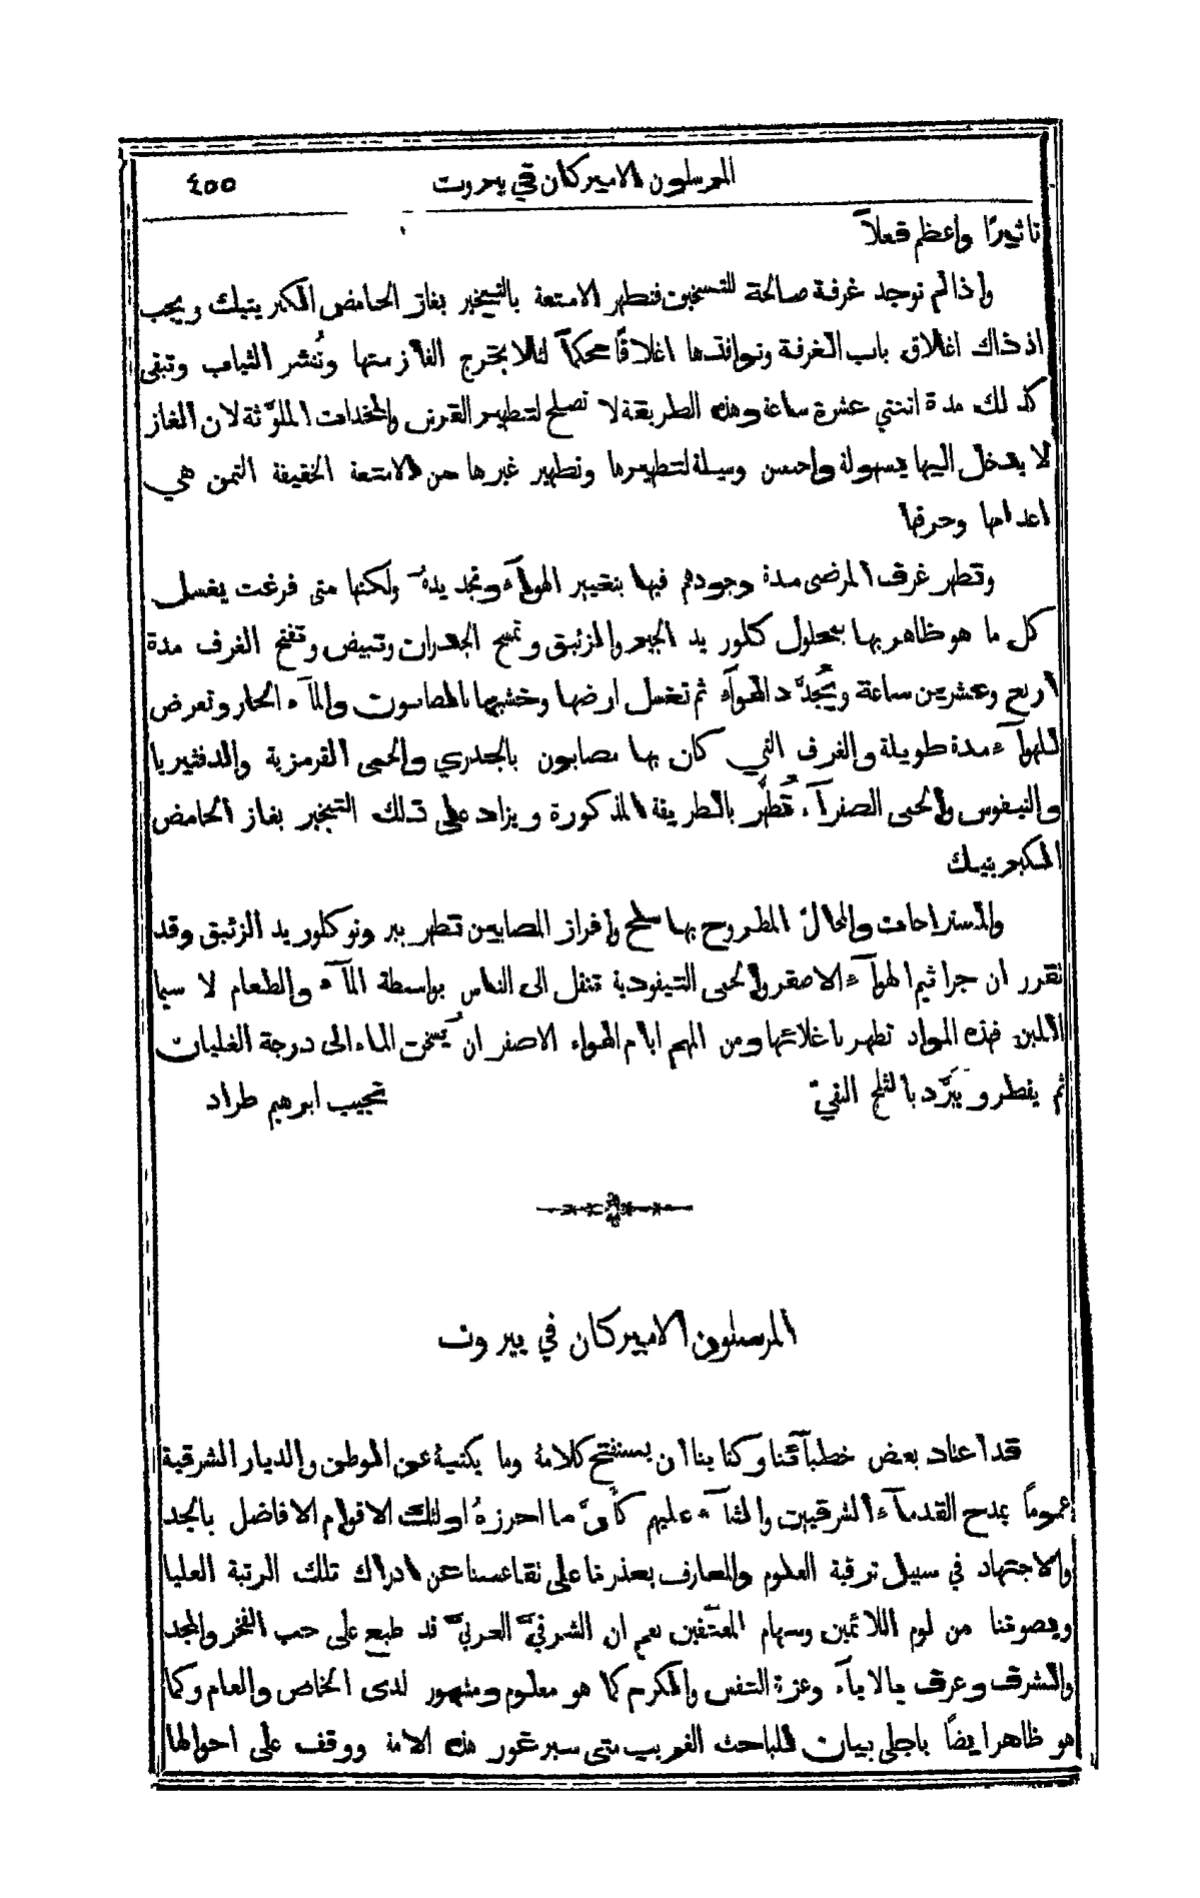 المرسلون الاميركان في بيروت ٤٥٥
تاثيرًا واعظم فعلاً
واذا لم توجد غرفة صالحة للتسخين فتطهر الامتعة بالتبخير بغاز الحامض الكبريتيك ويجب
اذ ذاك اغلاق باب الغرفة ونوافذها اغلاقًا محكمًا لئلا يخرج الغاز منها وتُنشر الثياب وتبقى
كذلك مدة اثنتي عشرة ساعة وهذه الطريقة لا تصلح لتطهير الفرش والمخدات الملوَّثة لان الغاز
لا يدخل اليها بسهولة واحسن وسيلة لتطهيرها وتطهير غيرها من الامتعة الخفيفة الثمن هي
اعدامها وحرقها
وتطهر غرف المرضى مدة وجودهم فيها بتغيير الهوآء وتجديدهِ ولكنها متى فرغت يغسل
كل ما هو ظاهر بها بمحلول كلوريد الجير والزئبق وتمسح الجدران وتبيض وتفتح الغرف مدة
اربع وعشرين ساعة ويُجدَّد الهوآء ثم تغسل ارضها وخشبها بالصابون والمآء الحار وتعرض
للهوآء مدة طويلة والغرف التي كان بها مصابون بالجدري والحمى القرمزية والدفثيريا
والتيفوس والحمى الصفرآء تُطهَّر بالطريقة المذكورة ويزاد على ذلك التبخير بغاز الحامض
الكبريتيك
والمستراحات والمحالّ المطروح بها سلح وافراز المصابين تطهر ببرونوكلوريد الزئبق وقد
تقرر ان جراثيم الهوآء الاصفر والحمى التيفودية تنتقل الى الناس بواسطة المآء والطعام لا سيما
اللبن فهذه المواد تطهر باغلائها ومن المهم ايام الهواء الاصفر ان يُسخن الماء الى درجة الغليان
ثم يقطر ويبرَّد بالثلج النقيّ نجيب ابرهيم طراد
المرسلون الاميركان في بيروت
قد اعتاد بعض خطبآئنا وكتابنا ان يستفتح كلامهُ وما يكتبهُ عن الوطن والديار الشرقية
عمومًا بمدح القدمآء الشرقيين والثنآء عليهم كأنَّ ما احرزهُ اولئك الاقوام الافاضل بالجد
والاجتهاد في سبيل ترقية العلوم والمعارف يعذرنا على تقاعسنا عن ادراك تلك الرتبة العليا
ويصوننا من لوم اللائمين وسهام المعنّفين نعم ان الشرقيَّ العربيَّ قد طبع على حب الفخر والمجد
والشرف وعرف بالابآء وعزة النفس والكرم كما هو معلوم ومشهور لدى الخاص والعام وكما
هو ظاهر ايضًا باجلى بيان للباحث الغريب متى سبر غور هذه الامة ووقف على احوالها